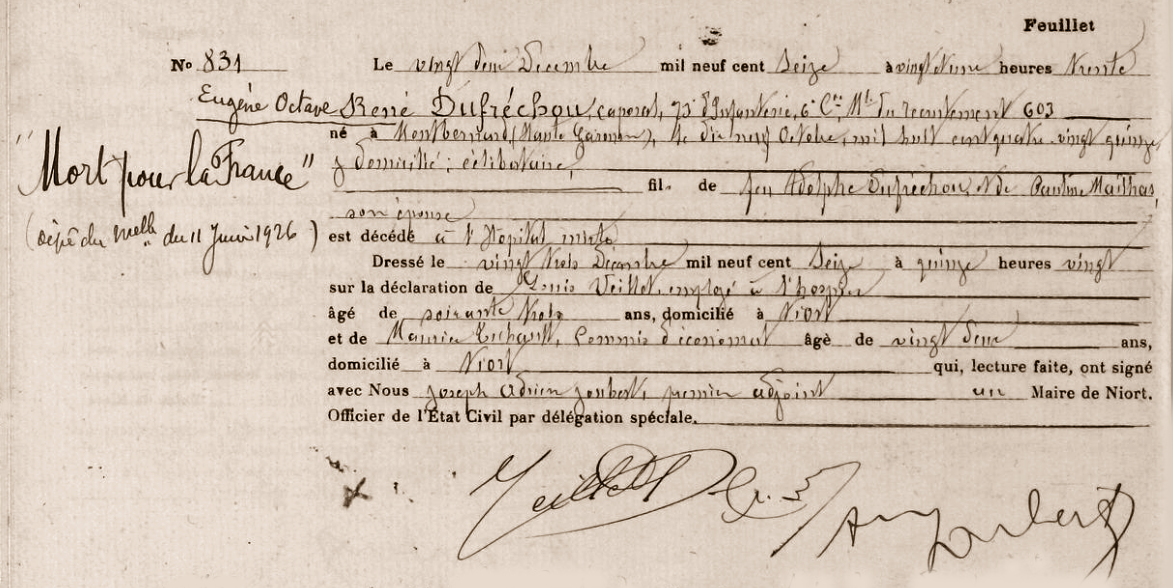 Feuillet
No 831 Le vingt deux Décembre mil neuf cent Seize à vingt une heures trente
Eugène Octave René Dufréchou, caporal, 73e d'Infanterie, 6e Cie, Mle du recrutement 603
né à Montbernard (Haute Garonne), le dix neuf Octobre mil huit cent quatre vingt quinze
y domicilié; célibataire,
"Mort pour la France"
fils de feu Adolphe Dufréchou, Pauline Mailhas,
son épouse
(dépê du melle du 11 Juin 1926)
est décédé à l'Hopital mixte
Dressé le vingt trois Décembre mil neuf cent Seize à quinze heures vingt
sur la déclaration de Louis Veillet, employé à l'hospice
âgé de soixante trois ans, domicilié à Niort
et de Maurice Commis d'économat âgé de vingt deux ans,
domicilié à Niort qui, lecture faite, ont signé
avec Nous Joseph Adrien Joubert, premier adjoint un Maire de Niort.
Officier de l'État Civil par délégation spéciale.
Joubert